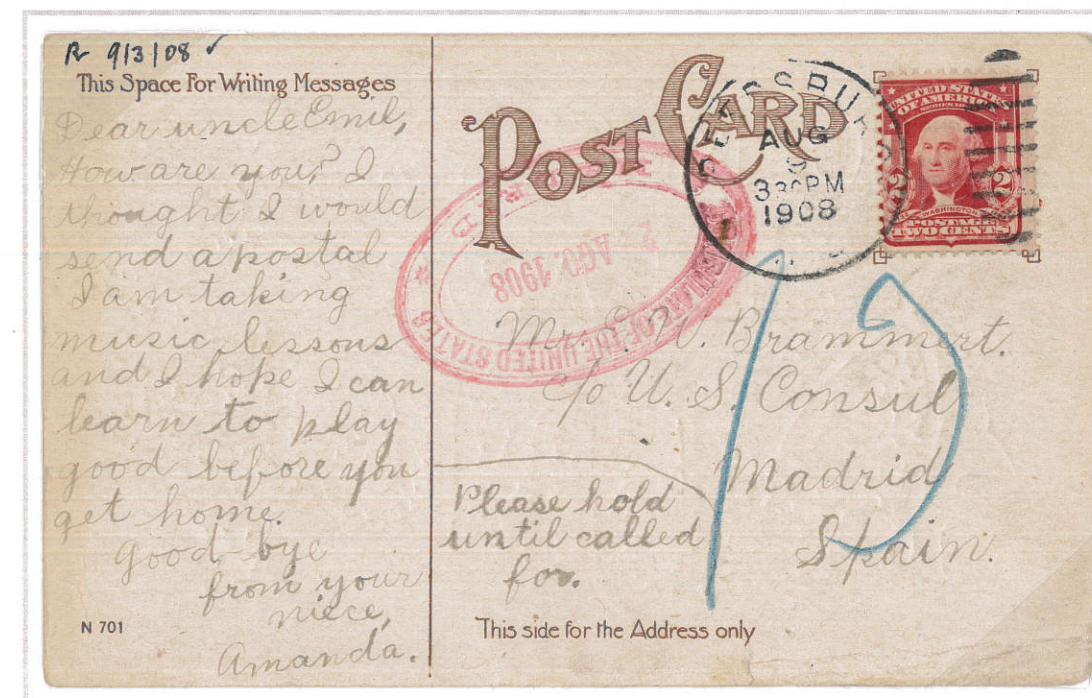 R 9/3/08 ✓
This Space For Writing Messages
Dear uncle Emil,
How are you? I
thought I would
send a postal
I am taking
music lessons
and I hope I can
learn to play
good before you
get home.
Good-bye
from your
niece,
Amanda.
N 701
POST CARD
AUG
3 30 PM
1908
UNITED STATES
OF AMERICA
WASHINGTON
POSTAGE
2 2
TWO CENTS
OF THE UNITED STATES
AGO. 1908
Mr. Brammert.
c/o U. S. Consul
Madrid
Spain.
Please hold
until called
for.
This side for the Address only